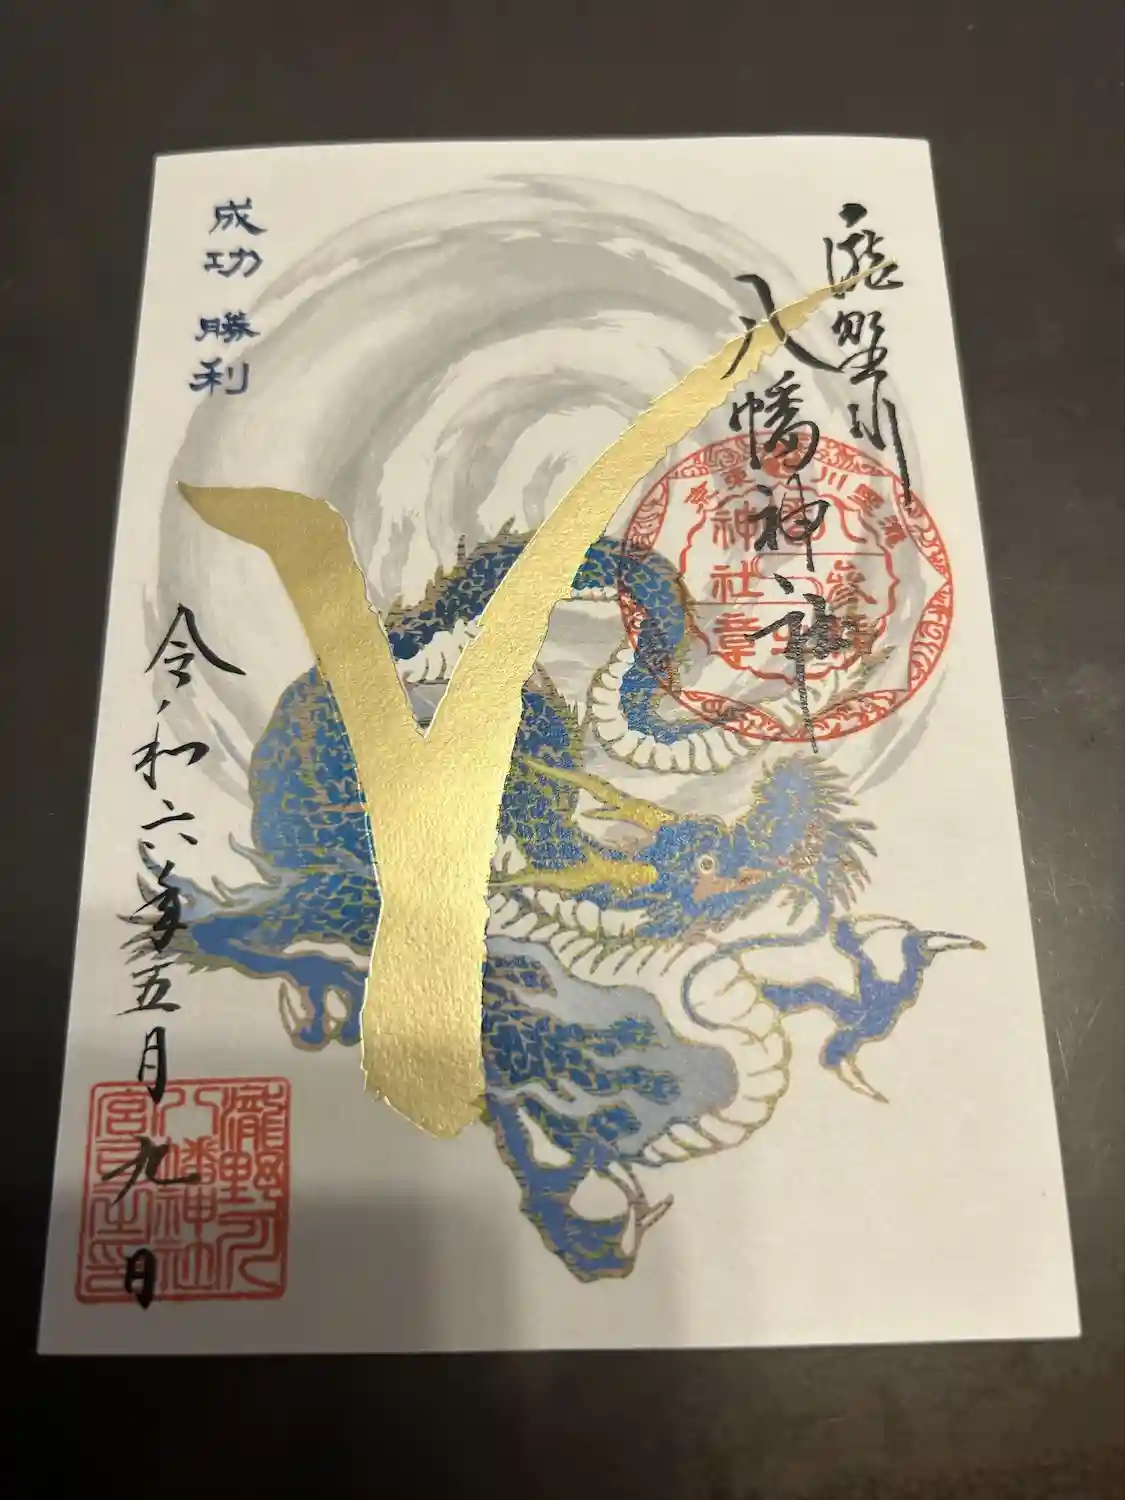 瀧野川
八幡神社
成功 勝利
令和六年五月九日
八幡
神社
章
瀧野川
八幡神社
宮司之印